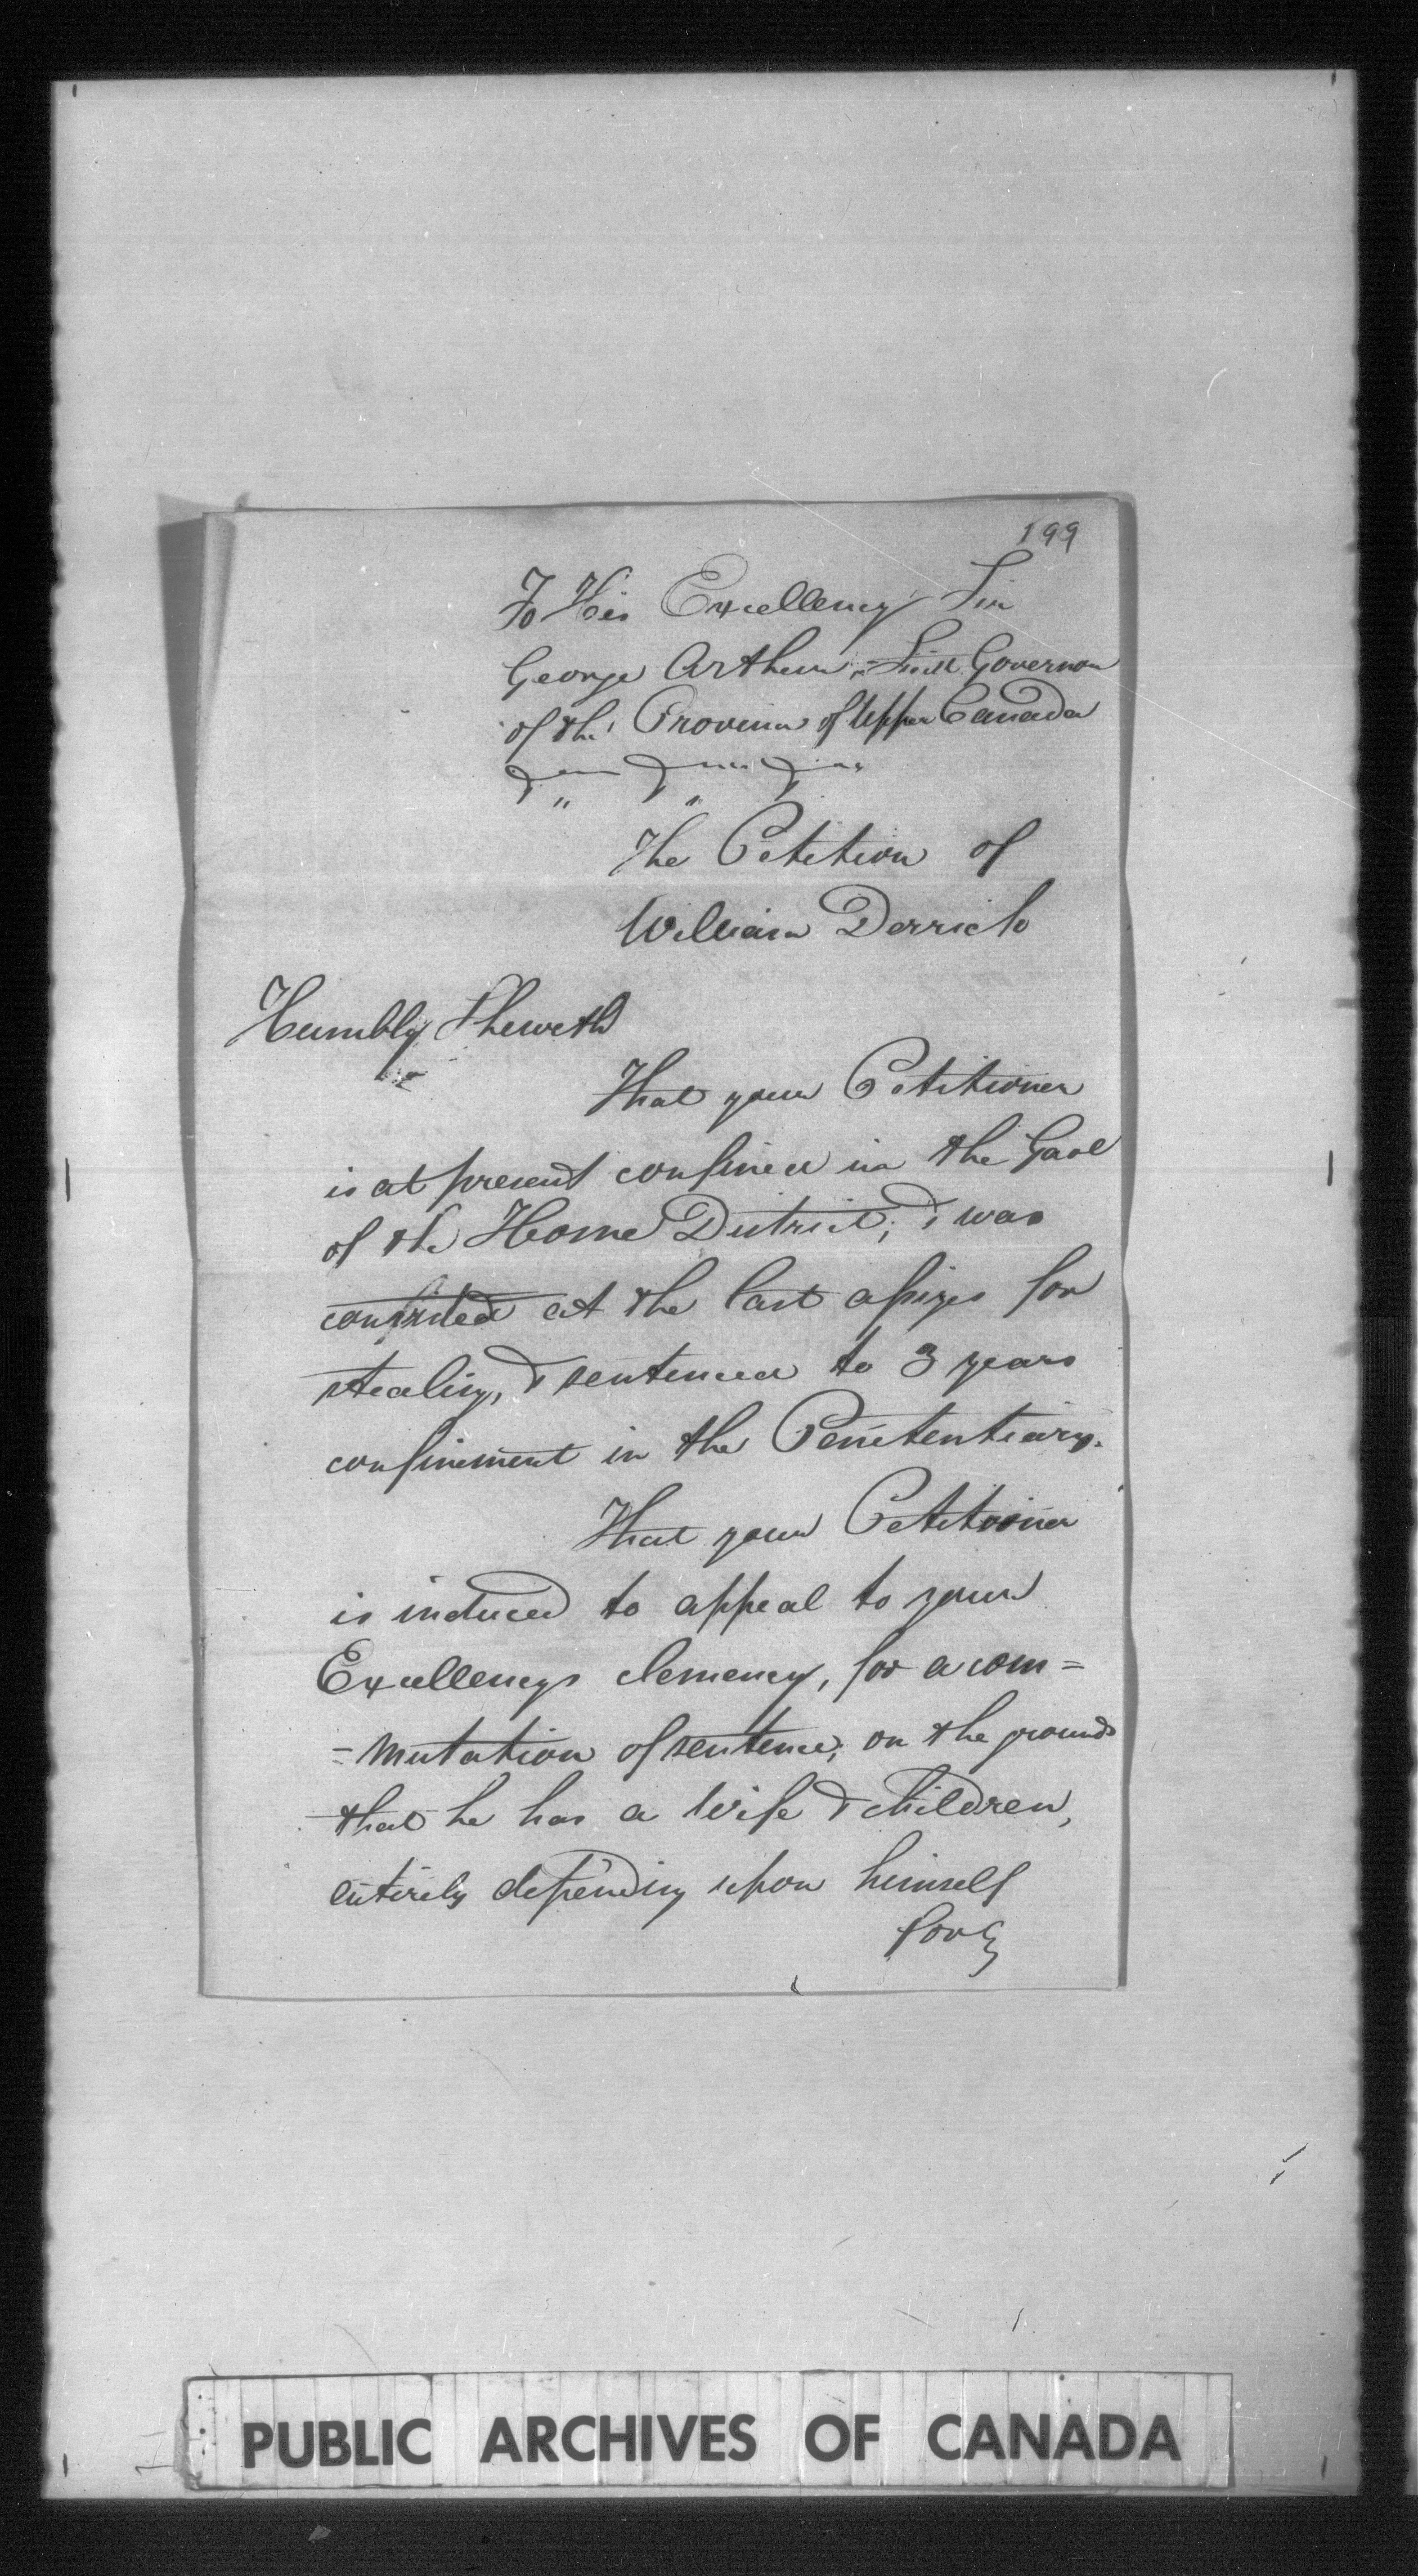 199
To His Excellency Sir
George Arthur, Lieut Governor
of the Province of Upper Canada
& & &
The Petition of
William Derrick
Humbly Sheweth
That your Petitioner
is at present confined in the Gaol
of the Home District; & was
at the last assizes for
stealing, & sentenced to 3 years
confinement in the Penitentiary.
That your Petitioner
is induced to appeal to your
Excellencys clemency, for a com=
=mutation of sentence, on the grounds
that he has a Wife & children,
entirely depending upon himself
for
PUBLIC ARCHIVES OF CANADA